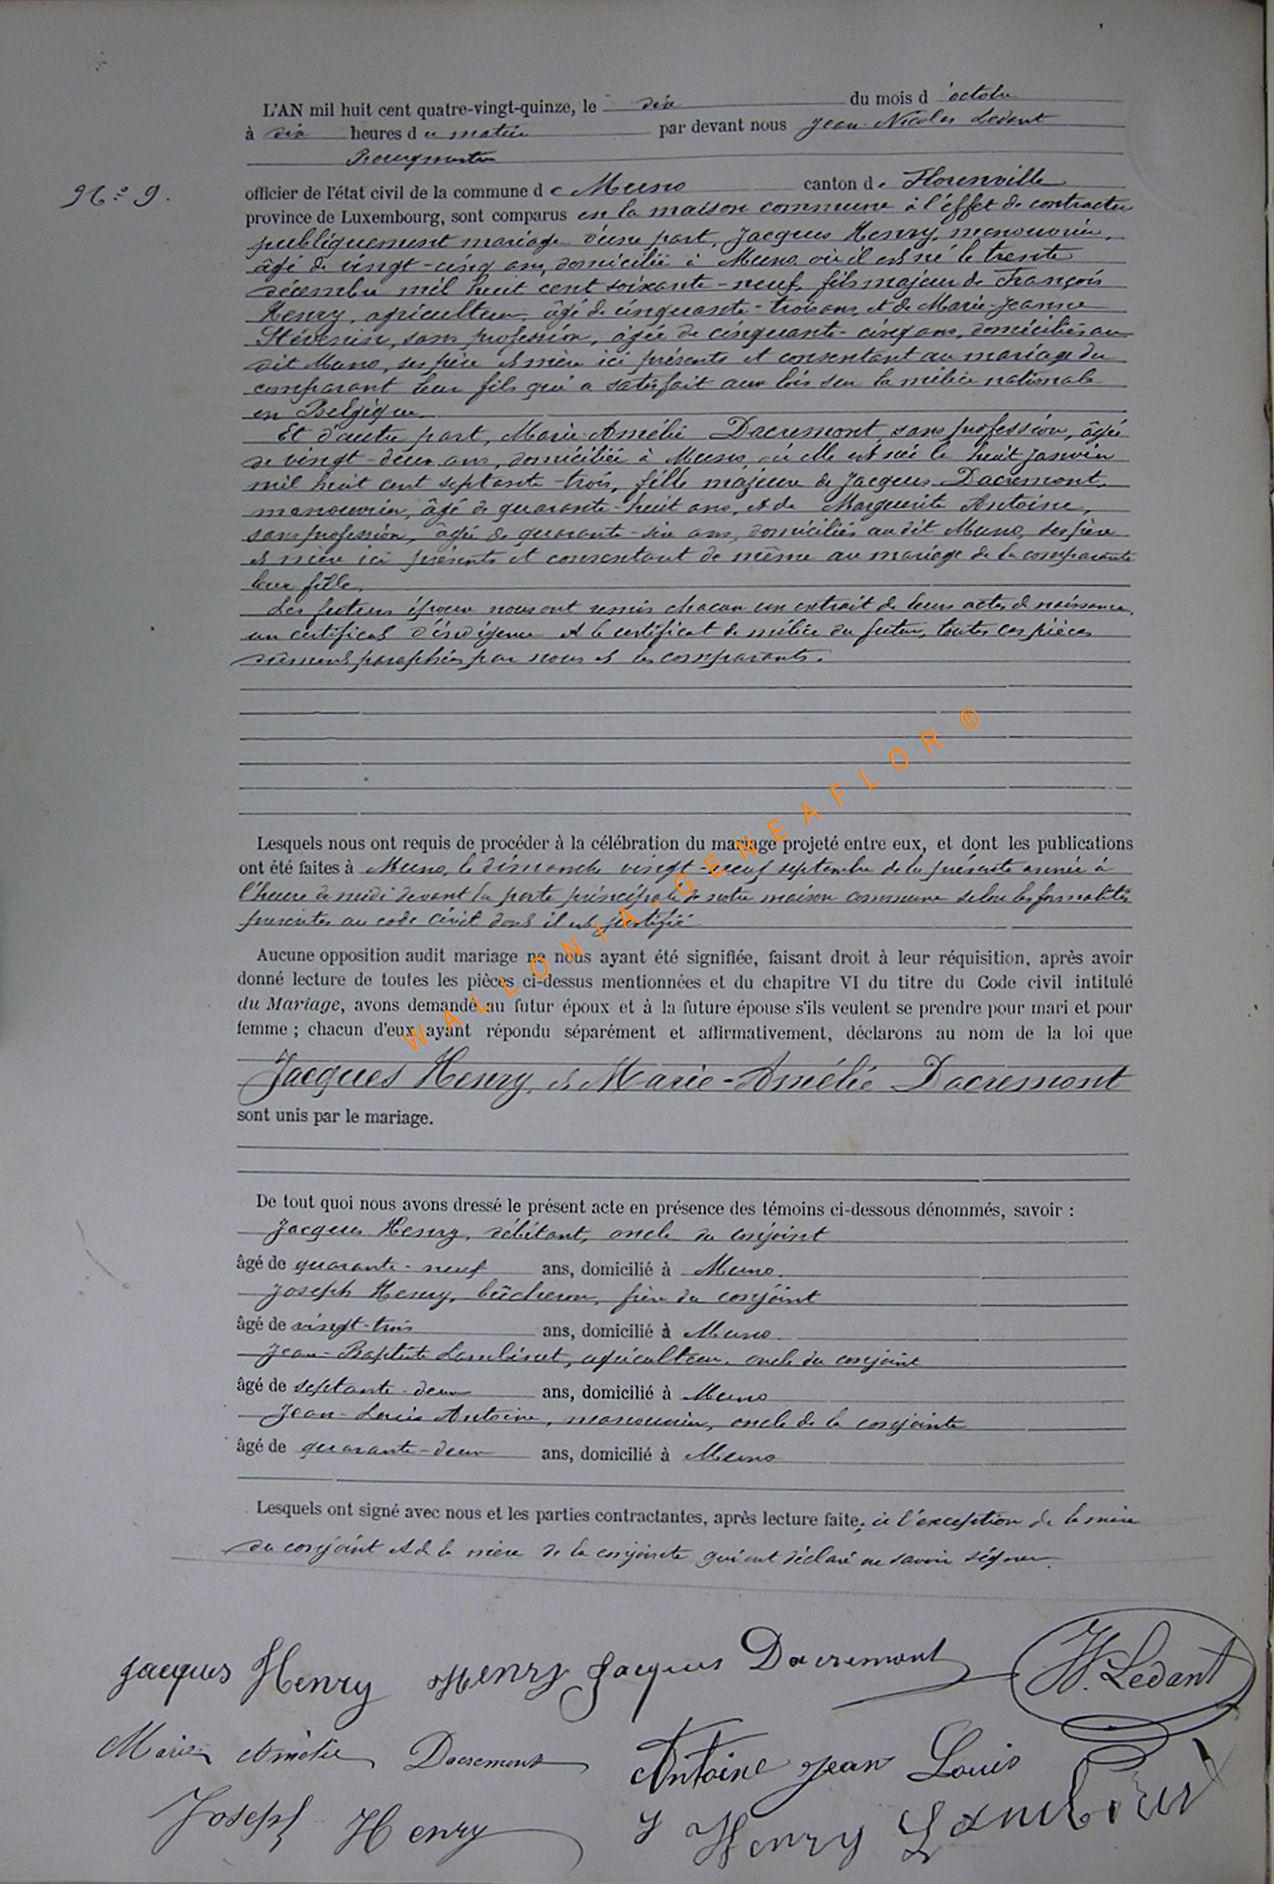 L'AN mil huit cent quatre-vingt-quinze, le dix du mois d'octobre
à dix heures du matin par devant nous Jean-Nicolas Ledant
Bourgmestre
N° 9.
officier de l'état civil de la commune de Muno canton de Florenville
province de Luxembourg, sont comparus en la maison commune à l'effet de contracter
publiquement mariage d'une part, Jacques Henry, manouvrier,
âgé de vingt-cinq ans, domicilié à Muno où il est né le trente
décembre mil huit cent soixante-neuf, fils majeur de François
Henry, agriculteur, âgé de cinquante-trois ans, et de Marie-Jeanne
Stévenin, sans profession, âgée de cinquante-cinq ans, domiciliés au
dit Muno, ses père et mère ici présents et consentant au mariage du
comparant leur fils qui a satisfait aux lois sur la milice nationale
en Belgique.
Et d'autre part, Marie-Amélie Dacremont, sans profession, âgée
de vingt-deux ans, domiciliée à Muno, où elle est née le huit janvier
mil huit cent septante-trois, fille majeure de Jacques Dacremont,
manouvrier, âgé de quarante-huit ans, et de Marguerite Antoine,
sans profession, âgée de quarante-six ans, domiciliés au dit Muno, ses père
et mère ici présents et consentant de même au mariage de la comparante
leur fille.
Les futurs époux nous ont remis chacun un extrait de leurs actes de naissance,
un certificat d'indigence et le certificat de milice du futur, toutes ces pièces
dûment paraphées par nous et les comparants.
Lesquels nous ont requis de procéder à la célébration du mariage projeté entre eux, et dont les publications
ont été faites à Muno, le dimanche vingt-neuf septembre de la présente année à
l'heure de midi devant la porte principale de notre maison commune selon les formalités
prescrites au code civil dont il est justifié
Aucune opposition audit mariage ne nous ayant été signifiée, faisant droit à leur réquisition, après avoir
donné lecture de toutes les pièces ci-dessus mentionnées et du chapitre VI du titre du Code civil intitulé
du Mariage, avons demandé au futur époux et à la future épouse s'ils veulent se prendre pour mari et pour
femme ; chacun d'eux ayant répondu séparément et affirmativement, déclarons au nom de la loi que
Jacques Henry et Marie-Amélie Dacremont
sont unis par le mariage.
De tout quoi nous avons dressé le présent acte en présence des témoins ci-dessous dénommés, savoir :
Jacques Henry, débitant, oncle du conjoint
âgé de quarante-neuf ans, domicilié à Muno.
Joseph Henry, bûcheron, frère du conjoint
âgé de vingt-trois ans, domicilié à Muno.
Jean-Baptiste Lambinet, agriculteur, oncle du conjoint
âgé de septante-deux ans, domicilié à Muno
Jean-Louis Antoine, manouvrier, oncle de la conjointe
âgé de quarante-deux ans, domicilié à Muno
Lesquels ont signé avec nous et les parties contractantes, après lecture faite, à l'exception de la mère
du conjoint et de la mère de la conjointe qui ont déclaré ne savoir signer.
Jacques Henry Henry Jacques Dacremont Ledant
Marie Amélie Dacremont Antoine Jean Louis
Joseph Henry J Henry Lambinet
WALLONIA-GENEAFLOR®